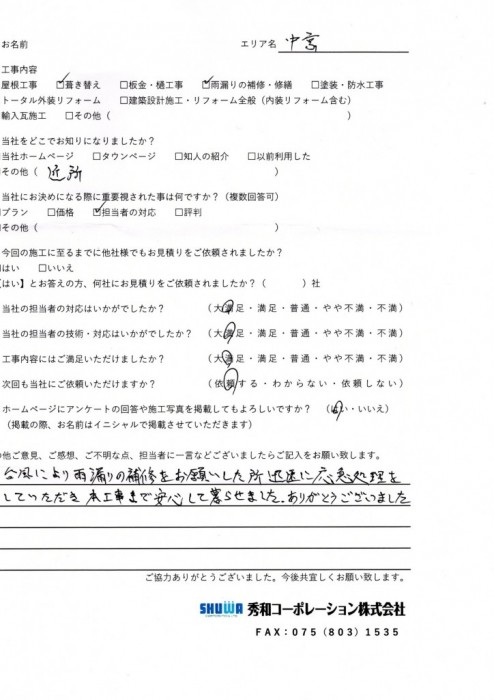 お名前 エリア名 中京
工事内容
屋根工事 ☑葺き替え □板金・樋工事 ☑雨漏りの補修・修繕 □塗装・防水工事
トータル外装リフォーム □建築設計施工・リフォーム全般（内装リフォーム含む）
輸入瓦施工 □その他（ ）
当社をどこでお知りになりましたか？
当社ホームページ □タウンページ □知人の紹介 □以前利用した
その他（ 近所 ）
当社にお決めになる際に重要視された事は何ですか？（複数回答可）
プラン □価格 ☑担当者の対応 □評判
その他（ ）
今回の施工に至るまでに他社様でもお見積りをご依頼されましたか？
はい □いいえ
はい】とお答えの方、何社にお見積りをご依頼されましたか？（ ）社
当社の担当者の対応はいかがでしたか？ （大満足・満足・普通・やや不満・不満）
当社の担当者の技術・対応はいかがでしたか？ （大満足・満足・普通・やや不満・不満）
工事内容にはご満足いただけましたか？ （大満足・満足・普通・やや不満・不満）
次回も当社にご依頼いただけますか？ （依頼する・わからない・依頼しない）
ホームページにアンケートの回答や施工写真を掲載してもよろしいですか？ （はい・いいえ）
（掲載の際、お名前はイニシャルで掲載させていただきます）
の他ご意見、ご感想、ご不明な点、担当者に一言などございましたらご記入をお願い致します。
台風により雨漏りの補修をお願いした所迅速に応急処理を
していただき本工事まで安心して暮らせました。ありがとうございました
ご協力ありがとうございました。今後共宜しくお願い致します。
SHUWA 秀和コーポレーション株式会社
FAX：075（803）1535